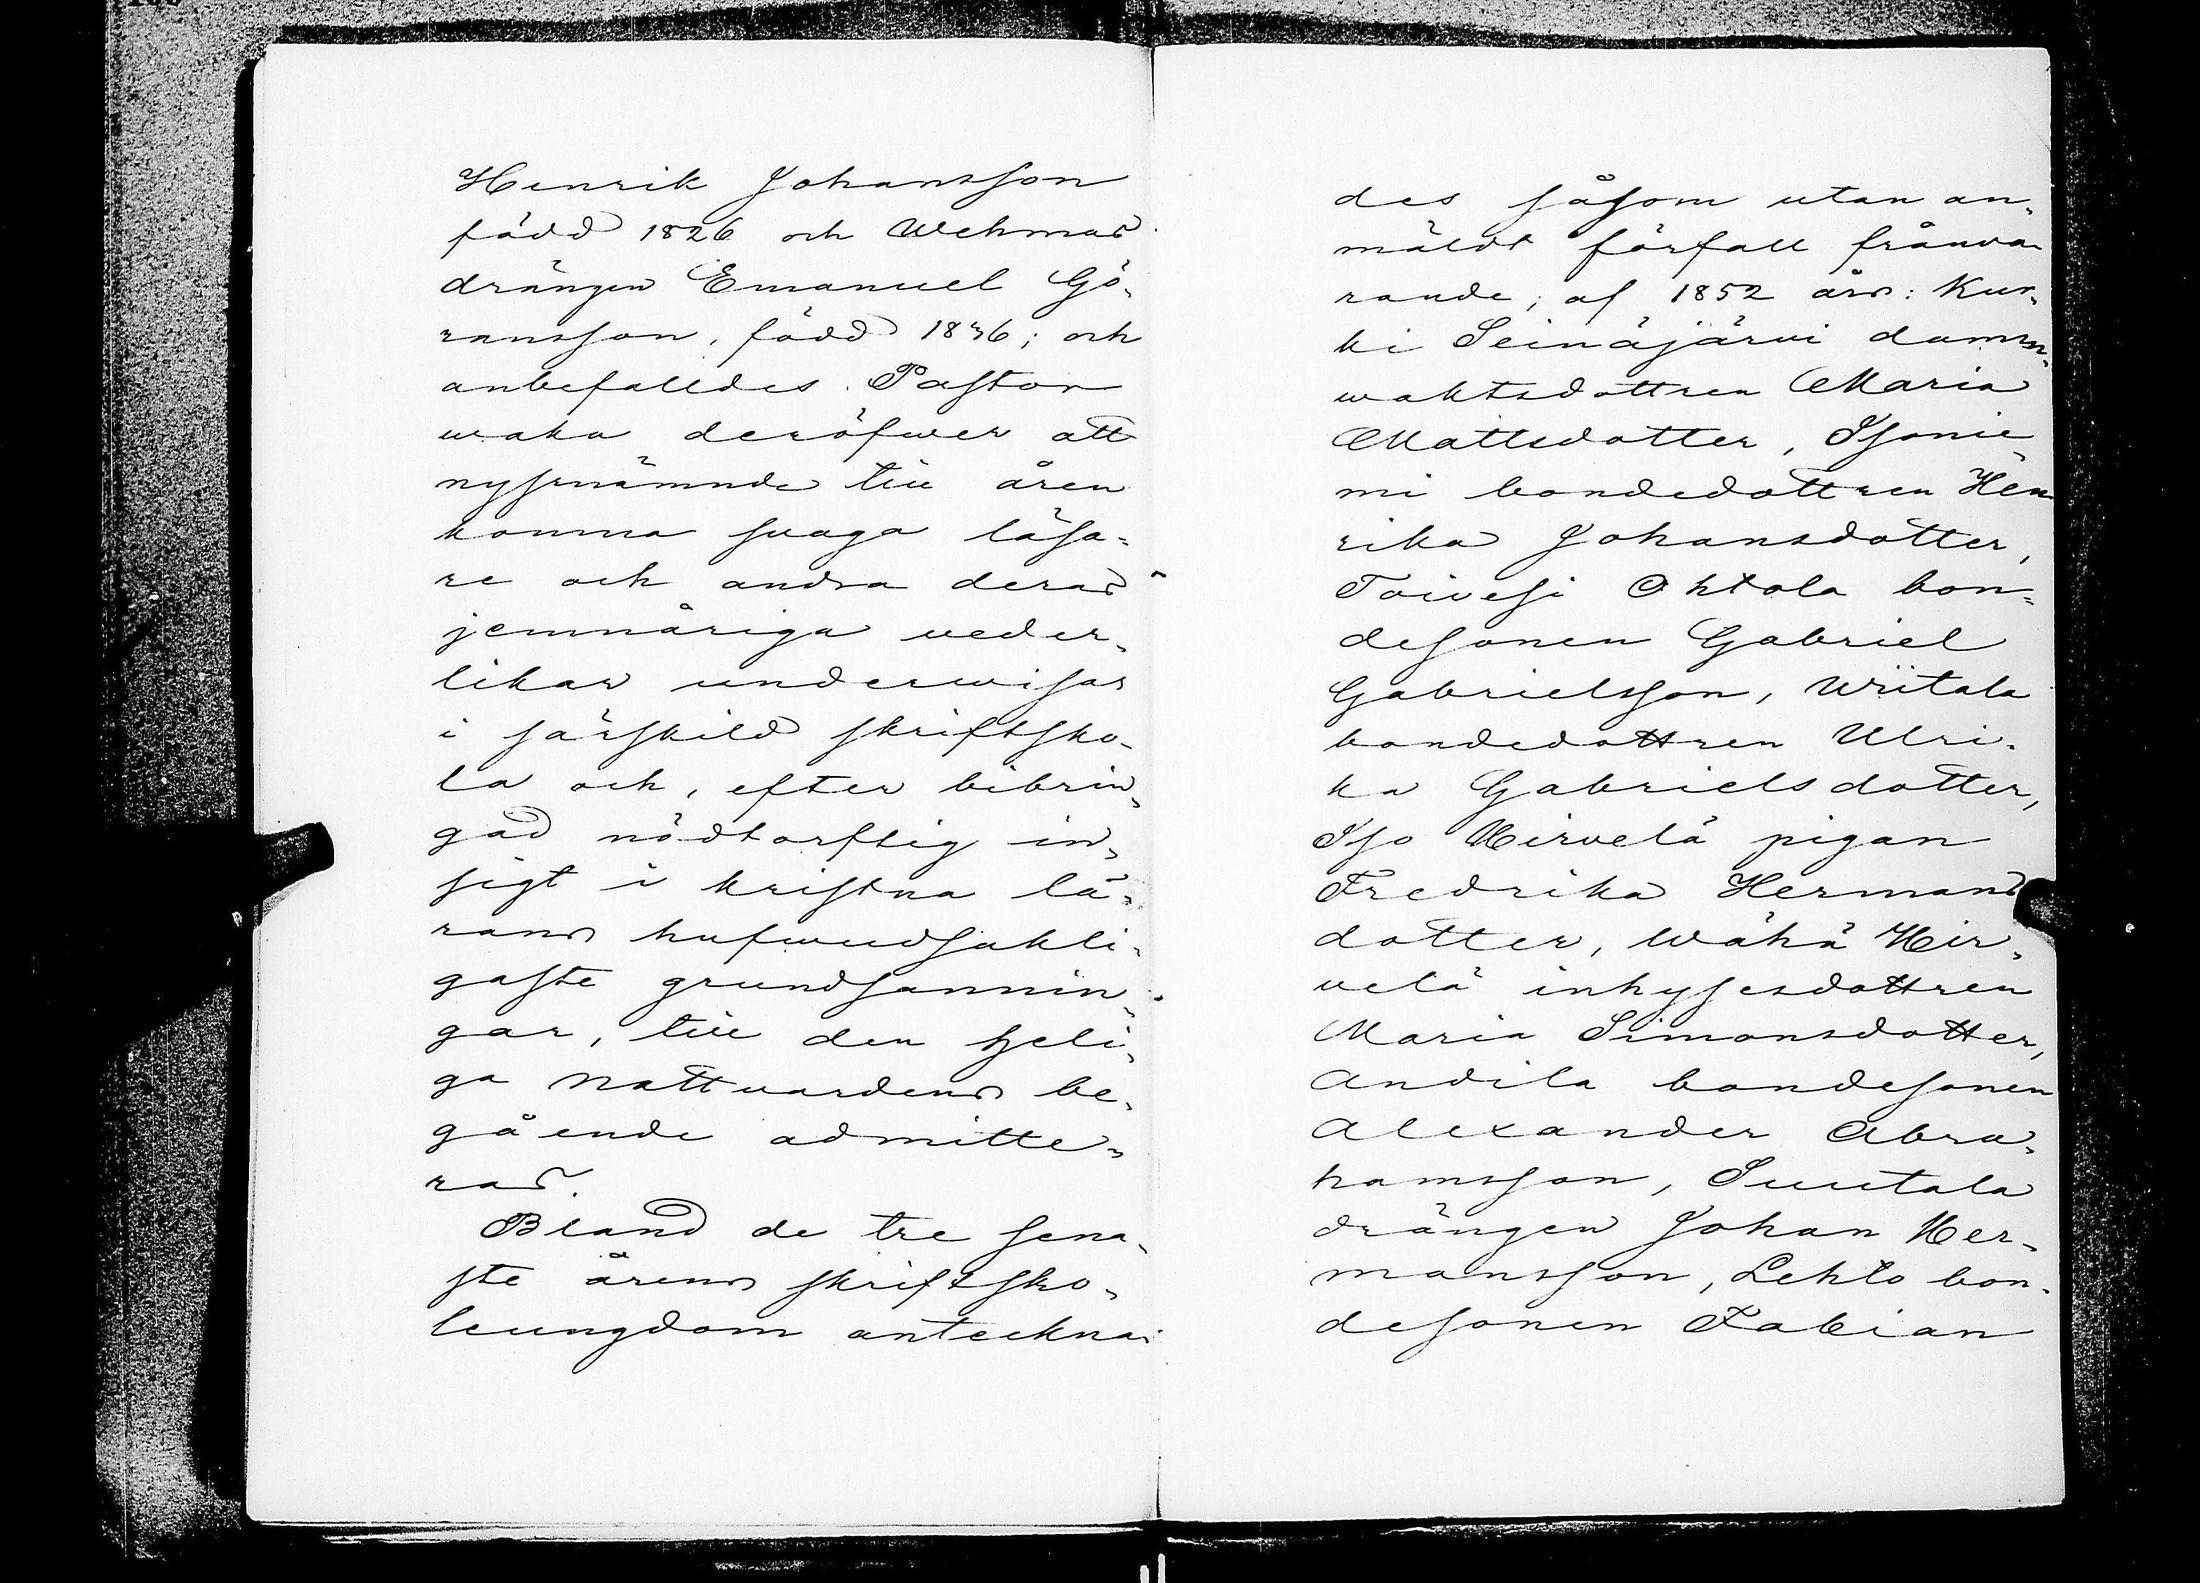 Henrik Johansson
född 1826 och Wehmas
drängen Emanuel Gö-
ransson, född 1836; och
anbefalldes Pastor
waka deröfwer att
nyssnämnde till åren
komna svaga läsa-
re och andra deras
jemnåriga veder-
likar underwisas
i särskild skriftsko-
la och, efter bibrin-
gad nödtorftig in-
sigt i kristna lä-
rans hufwudsakli-
gaste grundsannin-
gar, till den heli-
ga Nattvardens be-
gående admitte-
ras.
Bland de tre sena-
ste årens skriftsko-
leungdom anteckna-
des såsom utan an-
mäldt förfall frånva-
rande; af 1852 års: Kur-
ki Seinäjärvi damm-
waktsdottren Maria
Mattsdotter, Isonie-
mi bondedottren Hen-
rika Johansdotter,
Toivesi Ohtola bon-
desonen Gabriel
Gabrielsson, Wiitala
bondedottren Ulri-
ka Gabrielsdotter,
Iso Hirvelä pigan
Fredrika Hermans
dotter, Wähä Hir-
velä inhysesdottren
Maria Simonsdotter,
Andila bondesonen
Alexander Abra-
hamsson, Suutala
drängen Johan Her-
mansson, Lehto bon-
desonen Fabian